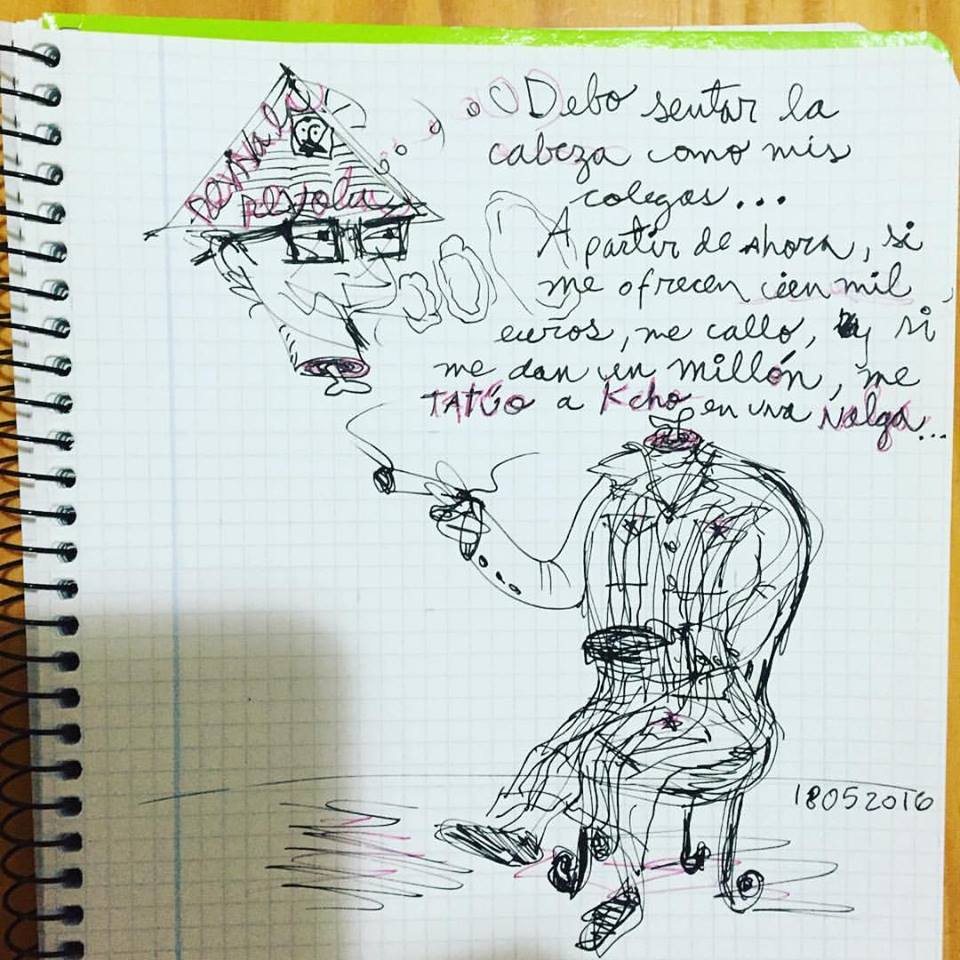 Debo sentar la
cabeza como mis
colegas...
A partir de ahora, si
me ofrecen cien mil
euros, me callo, y si
me dan un millón, me
TATÚo a Kcho en una Nalga...
18052016